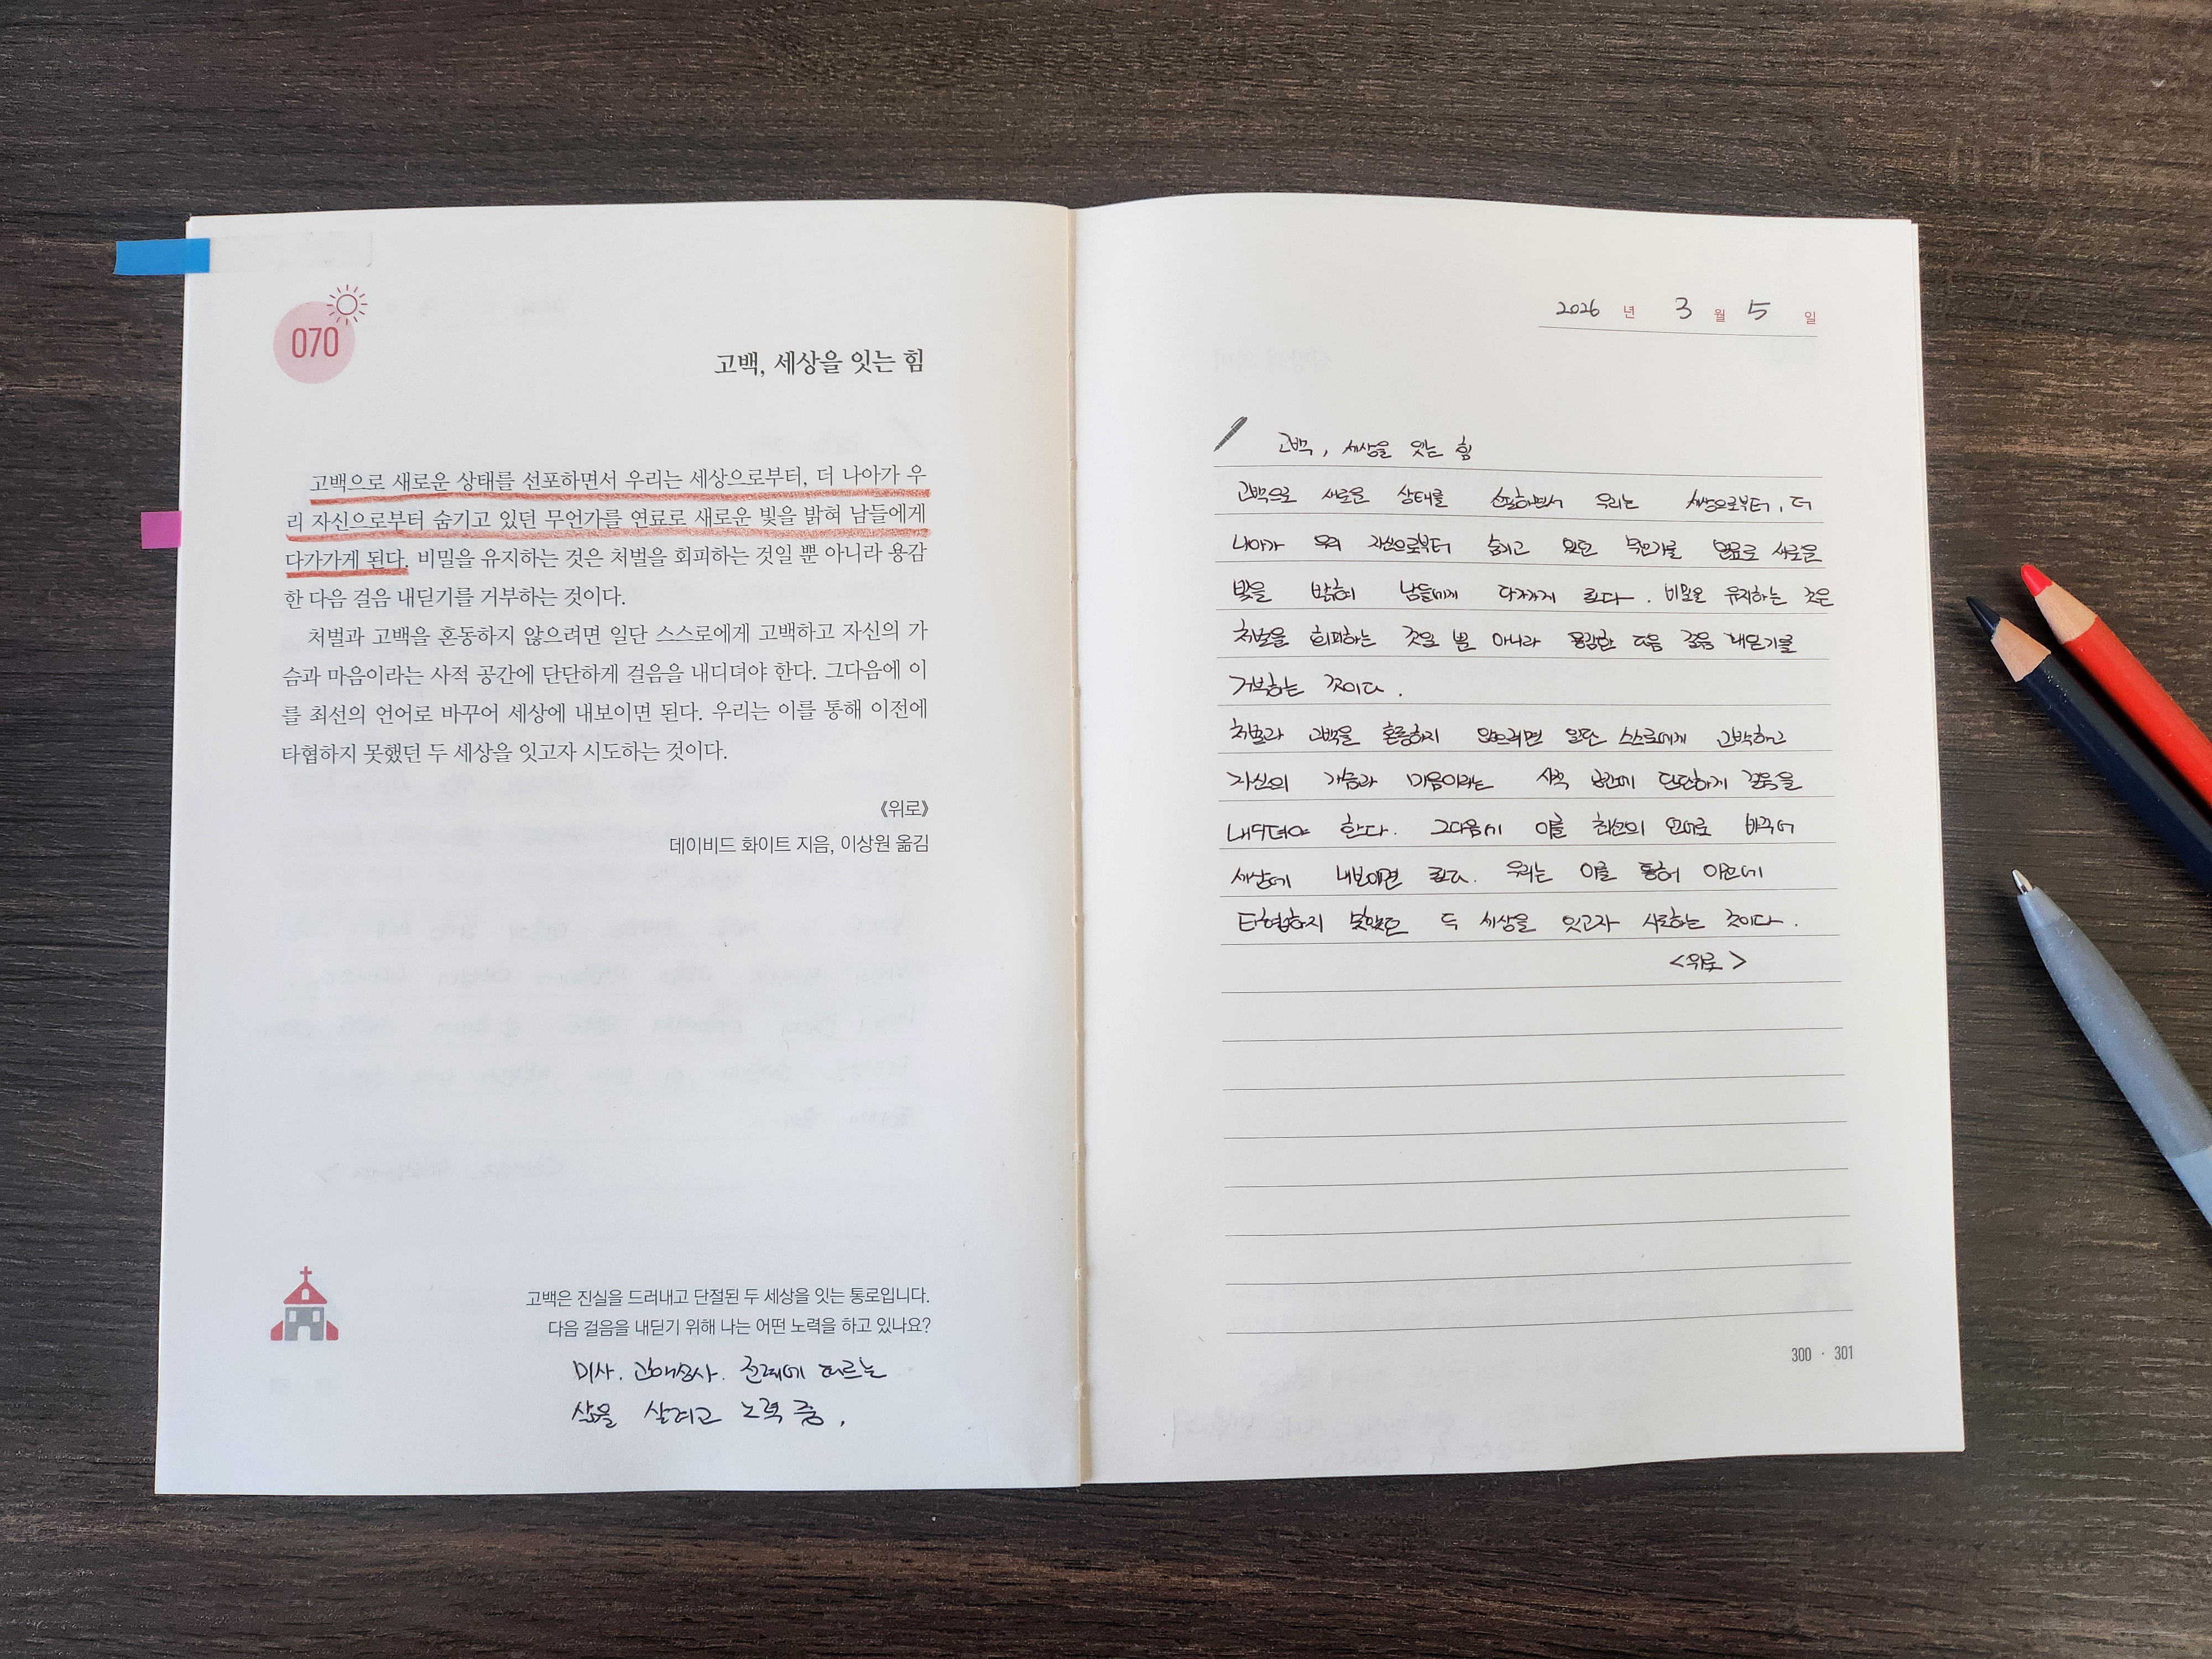 070
고백, 세상을 잇는 힘
고백으로 새로운 상태를 선포하면서 우리는 세상으로부터, 더 나아가 우
리 자신으로부터 숨기고 있던 무언가를 연료로 새로운 빛을 밝혀 남들에게
다가가게 된다. 비밀을 유지하는 것은 처벌을 회피하는 것일 뿐 아니라 용감
한 다음 걸음 내딛기를 거부하는 것이다.
처벌과 고백을 혼동하지 않으려면 일단 스스로에게 고백하고 자신의 가
슴과 마음이라는 사적 공간에 단단하게 걸음을 내디뎌야 한다. 그다음에 이
를 최선의 언어로 바꾸어 세상에 내보이면 된다. 우리는 이를 통해 이전에
타협하지 못했던 두 세상을 잇고자 시도하는 것이다.
《위로》
데이비드 화이트 지음, 이상원 옮김
고백은 진실을 드러내고 단절된 두 세상을 잇는 통로입니다.
다음 걸음을 내딛기 위해 나는 어떤 노력을 하고 있나요?
미사. 고해성사. 전례에 따르는
삶을 살려고 노력 중.
2026 년 3 월 5 일
고백, 세상을 잇는 힘
고백으로 새로운 상태를 선포하면서 우리는 세상으로부터, 더
나아가 우리 자신으로부터 숨기고 있던 무언가를 연료로 새로운
빛을 밝혀 남들에게 다가가게 된다. 비밀을 유지하는 것은
처벌을 회피하는 것일 뿐 아니라 용감한 다음 걸음 내딛기를
거부하는 것이다.
처벌과 고백을 혼동하지 않으려면 일단 스스로에게 고백하고
자신의 가슴과 마음이라는 사적 공간에 단단하게 걸음을
내디뎌야 한다. 그다음에 이를 최선의 언어로 바꾸어
세상에 내보이면 된다. 우리는 이를 통해 이전에
타협하지 못했던 두 세상을 잇고자 시도하는 것이다.
<위로>
300 · 301